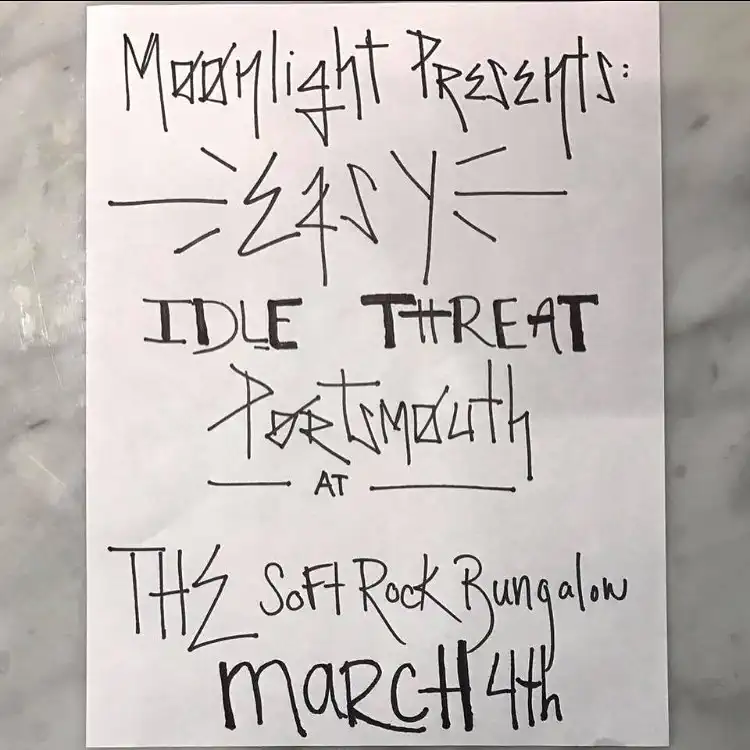 Moonlight Presents:
EASY
IDLE THREAT
Portsmouth
AT
THE Soft Rock Bungalow
MARCH 4th